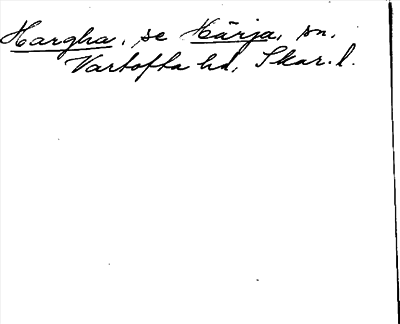 Hargha, se Härja, sn,
Vartofta hd, Skar. l.